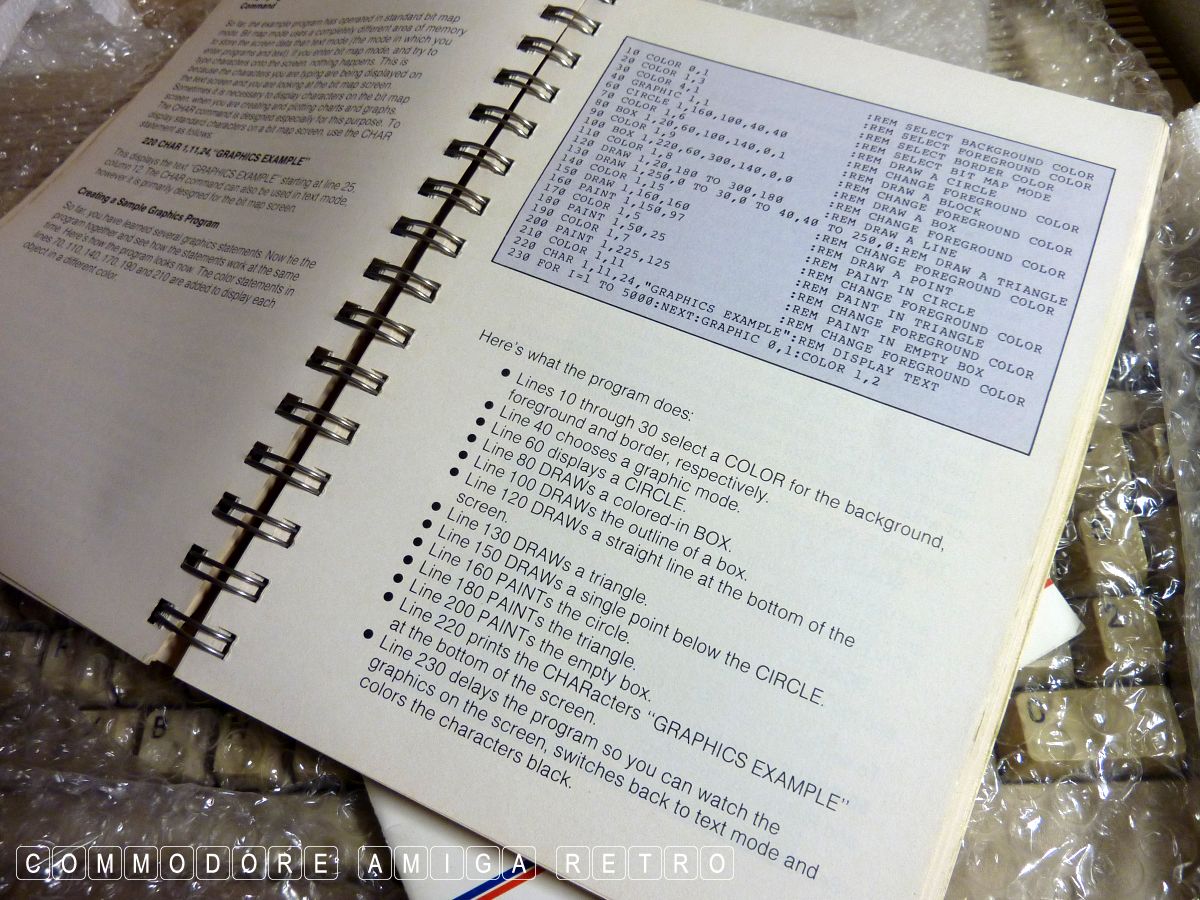 Command
So far, the example program has operated in standard bit map
mode. Bit map mode uses a completely different area of memory
to store the screen data than text mode (the mode in which you
enter programs and text). If you enter bit map mode, and try to
type characters onto the screen, nothing happens. This is
because the characters you are typing are being displayed on
the text screen and you are looking at the bit map screen.
Sometimes it is necessary to display characters on the bit map
screen, when you are creating and plotting charts and graphs.
The CHAR command is designed especially for this purpose. To
display standard characters on a bit map screen, use the CHAR
statement as follows:
220 CHAR 1,11,24,"GRAPHICS EXAMPLE"
This displays the text "GRAPHICS EXAMPLE" starting at line 25,
column 12. The CHAR command can also be used in text mode,
however it is primarily designed for the bit map screen.
Creating a Sample Graphics Program
So far, you have learned several graphics statements. Now tie the
program together and see how the statements work at the same
time. Here's how the program looks now. The color statements in
lines 70, 110, 140, 170, 190 and 210 are added to display each
object in a different color.
10 COLOR 0,1 :REM SELECT BACKGROUND COLOR
20 COLOR 1,3 :REM SELECT FOREGROUND COLOR
30 COLOR 4,1 :REM SELECT BORDER COLOR
40 GRAPHIC 1,1 :REM SELECT BIT MAP MODE
60 CIRCLE 1,160,100,40,40 :REM DRAW A CIRCLE
70 COLOR 1,6 :REM CHANGE FOREGROUND COLOR
80 BOX 1,20,60,100,140,0,1 :REM DRAW A BLOCK
90 COLOR 1,9 :REM CHANGE FOREGROUND COLOR
100 BOX 1,220,60,300,140,0,0 :REM DRAW A BOX
110 COLOR 1,8 :REM CHANGE FOREGROUND COLOR
120 DRAW 1,20,180 TO 300,180 :REM DRAW A LINE
130 DRAW 1,250,0 TO 30,0 TO 40,40 TO 250,0:REM DRAW A TRIANGLE
140 COLOR 1,15 :REM CHANGE FOREGROUND COLOR
150 DRAW 1,160,160 :REM DRAW A POINT
160 PAINT 1,150,97 :REM PAINT IN CIRCLE
170 COLOR 1,5 :REM CHANGE FOREGROUND COLOR
180 PAINT 1,50,25 :REM PAINT IN TRIANGLE
190 COLOR 1,7 :REM CHANGE FOREGROUND COLOR
200 PAINT 1,225,125 :REM PAINT IN EMPTY BOX
210 COLOR 1,11 :REM CHANGE FOREGROUND COLOR
220 CHAR 1,11,24,"GRAPHICS EXAMPLE":REM DISPLAY TEXT
230 FOR I=1 TO 5000:NEXT:GRAPHIC 0,1:COLOR 1,2
Here's what the program does:
• Lines 10 through 30 select a COLOR for the background,
foreground and border, respectively.
• Line 40 chooses a graphic mode.
• Line 60 displays a CIRCLE.
• Line 80 DRAWs a colored-in BOX.
• Line 100 DRAWs the outline of a box.
• Line 120 DRAWs a straight line at the bottom of the
screen.
• Line 130 DRAWs a triangle.
• Line 150 DRAWs a single point below the CIRCLE.
• Line 160 PAINTs the circle.
• Line 180 PAINTs the triangle.
• Line 200 PAINTs the empty box.
• Line 220 prints the CHARacters "GRAPHICS EXAMPLE"
at the bottom of the screen.
• Line 230 delays the program so you can watch the
graphics on the screen, switches back to text mode and
colors the characters black.
COMMODORE AMIGA RETRO